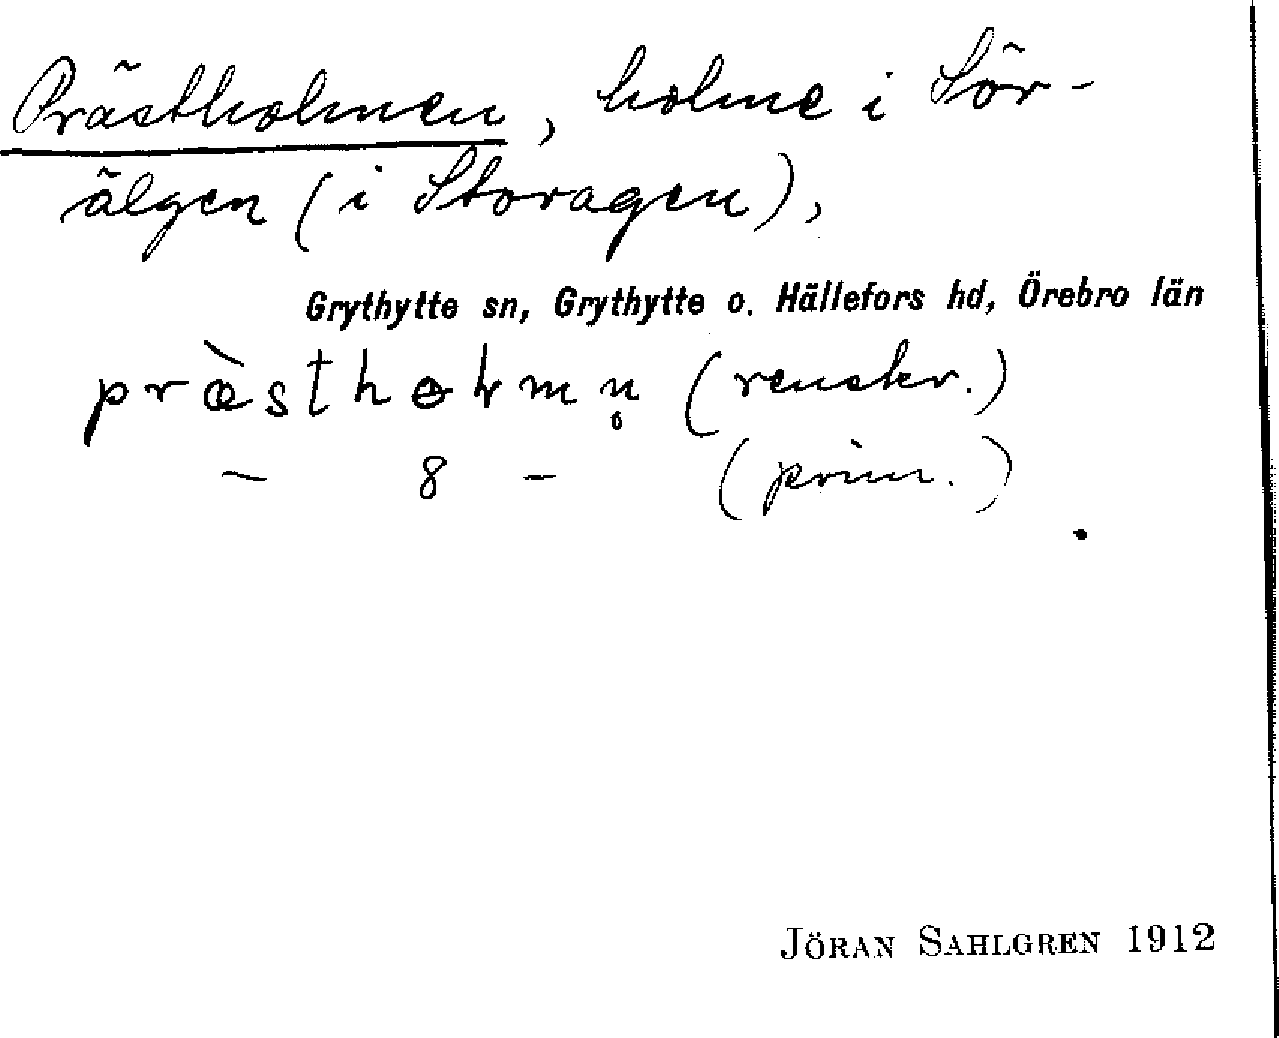 Prästholmen, holme i Sör-
älgen (i Storagen),
Grythytte sn, Grythytte o. Hällefors hd, Örebro län
præ̀sthɵɫmn̥ (renskr.)
– 8 – (prim.)
JÖRAN SAHLGREN 1912